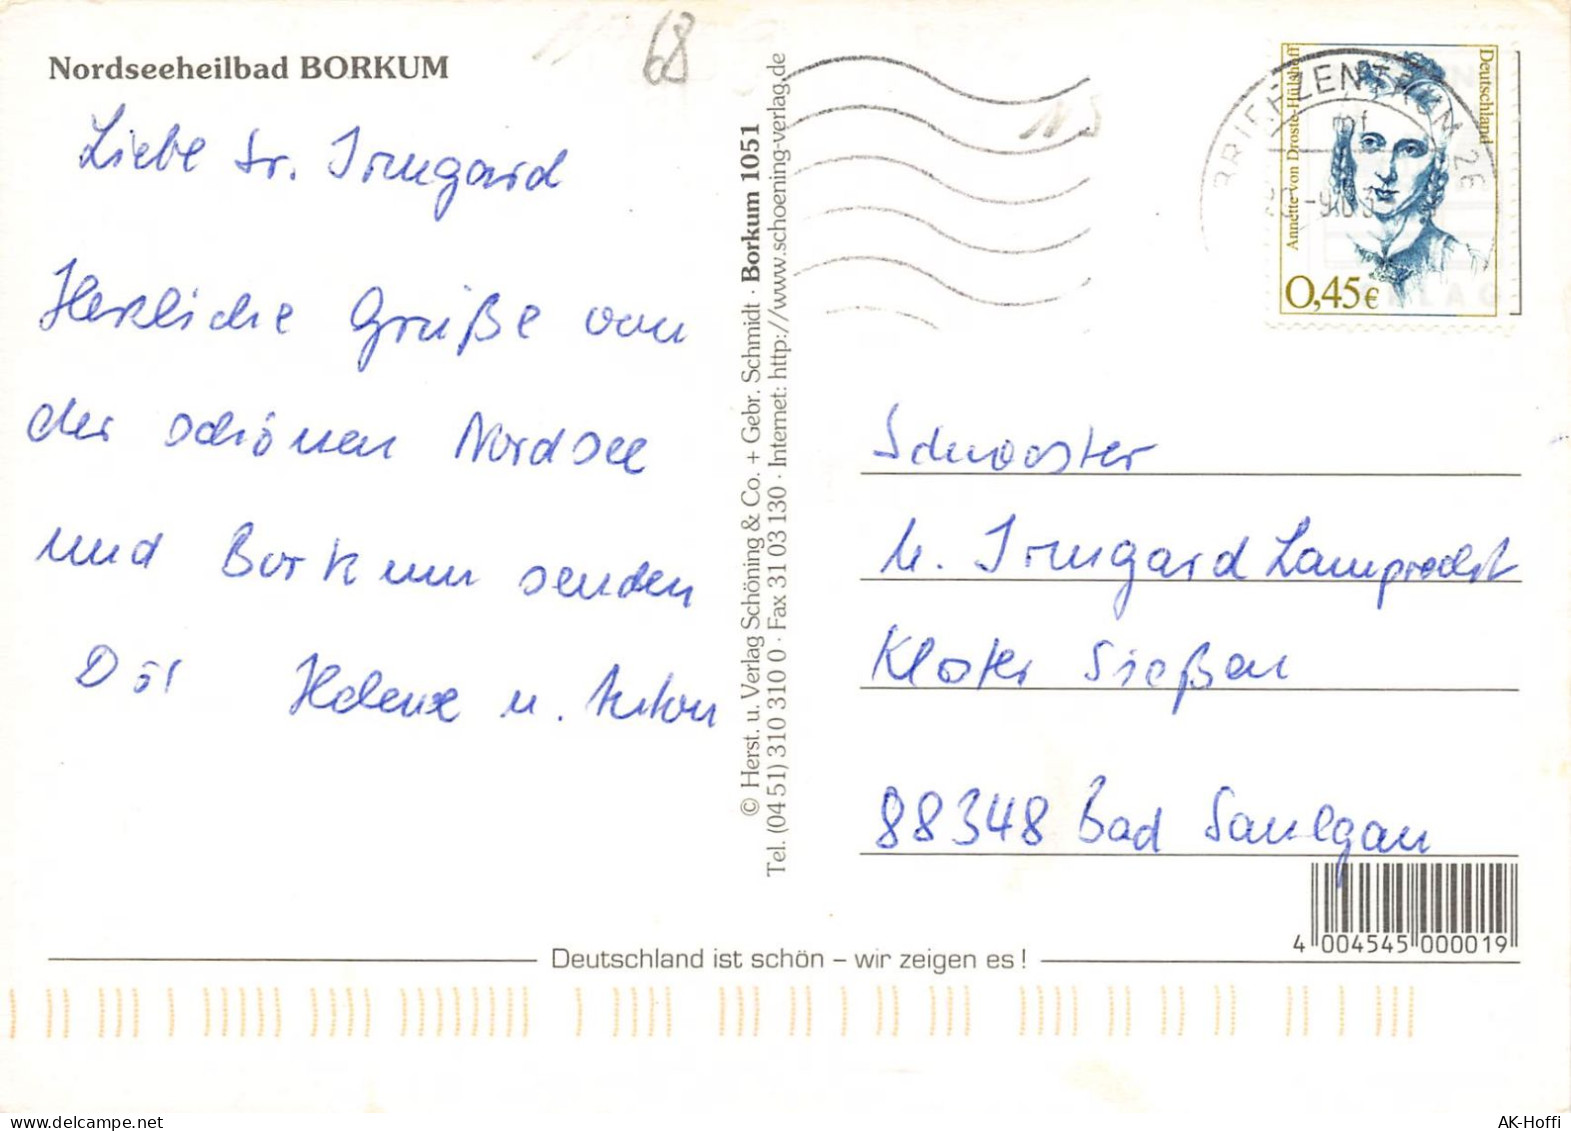 Nordseeheilbad BORKUM
68
Liebe Sr. Irmgard
Herzliche Grüße von
der schönen Nordsee
und Borkum senden
Dir Helene u. Anton
© Herst. u. Verlag Schöning & Co. + Gebr. Schmidt · Borkum 1051
Tel. (04 51) 310 310 0 · Fax 31 03 130 · Internet: http://www.schoening-verlag.de
BRIEFZENTRUM 26
mf
-9.03
Annette von Droste-Hülshoff
Deutschland
0,45€
Schwester
M. Irmgard Lamprecht
Kloster Sießen
88348 Bad Saulgau
4 004545 000019
Deutschland ist schön – wir zeigen es!
AK-Hoffi